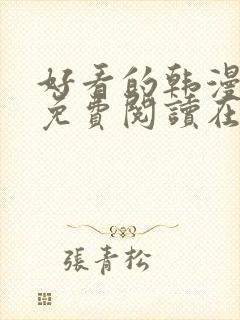 好看的韩漫
免費閱讀在
張青松